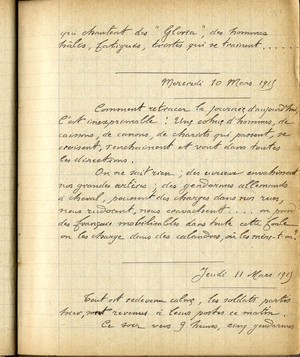 qui chantent des "Gloria", des hommes
hâlés, fatigués, éreintés qui se traînent.....
Mercredi 10 Mars 1915
Comment retracer la journée d'aujourd'hui,
c'est inexprimable ! Une cohue d'hommes, de
caissons, de canons, de chariots qui passent, se
croisent, s'enchaînent et vont dans toutes
les directions.
On ne sait rien ; des curieux envahissent
nos grandes artères ; des gendarmes allemands
à cheval, poussent des charges dans nos rues,
nous rudoient, nous cravachent..... on prend
des français mobilisables dans toute cette foule
on les charge dans des camions, où les mène-t-on ?
Jeudi 11 Mars 1915
Tout est redevenu calme, les soldats, partis
hier, sont revenus à leurs postes ce matin.
Ce soir vers 9 heures, cinq gendarmes